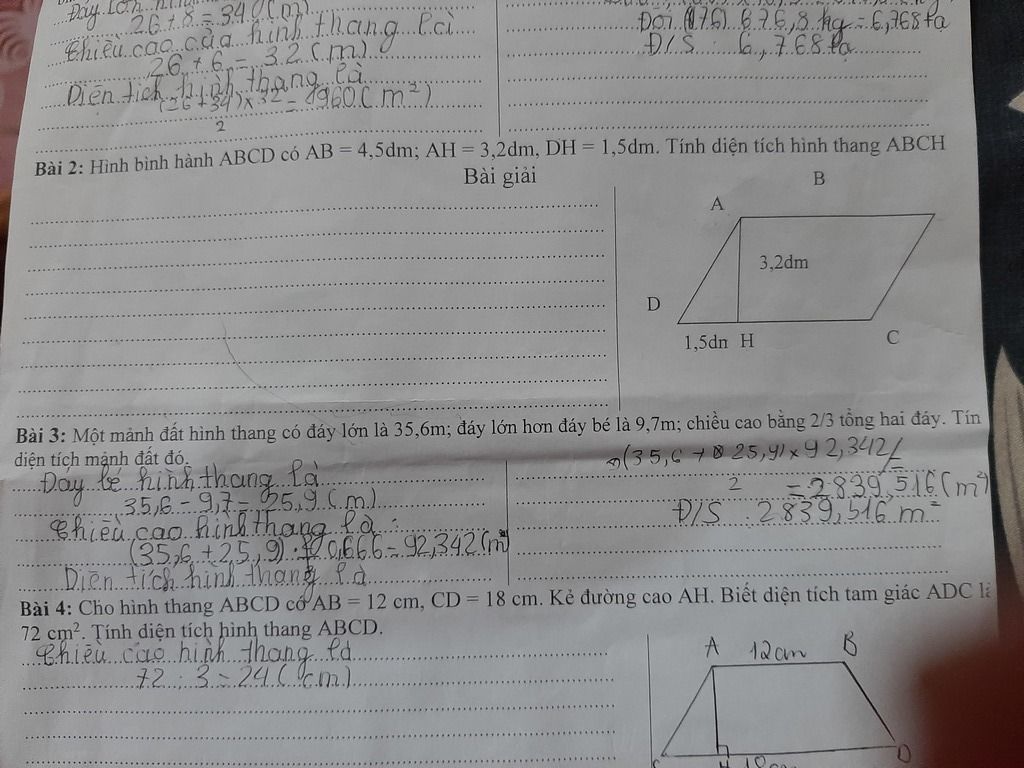 Đáy lớn hình
26 + 8 = 34 (m)
Chiều cao của hình thang là
26 + 6 = 32 (m)
Diện tích hình thang là
(26 + 34) x 32 = 960 (m²)
2
Đổi 676,8 kg = 6,768 tạ
Đ/S : 6,768 tạ
Bài 2: Hình bình hành ABCD có AB = 4,5dm; AH = 3,2dm, DH = 1,5dm. Tính diện tích hình thang ABCH
Bài giải
A
B
3,2dm
D
1,5dn H
C
Bài 3: Một mảnh đất hình thang có đáy lớn là 35,6m; đáy lớn hơn đáy bé là 9,7m; chiều cao bằng 2/3 tổng hai đáy. Tín
diện tích mảnh đất đó.
Đáy bé hình thang là
35,6 - 9,7 = 25,9 (m)
Chiều cao hình thang là :
(35,6 + 25,9) : 0,666 = 92,342 (m
Diện tích hình thang là
(35,6 + 25,9) x 92,342
2
= 2839,516 (m²)
Đ/S : 2839,516 m²
Bài 4: Cho hình thang ABCD có AB = 12 cm, CD = 18 cm. Kẻ đường cao AH. Biết diện tích tam giác ADC là
72 cm². Tính diện tích hình thang ABCD.
Chiều cao hình thang là
72 : 3 = 24 (cm)
A 12cm B
C H 18cm D